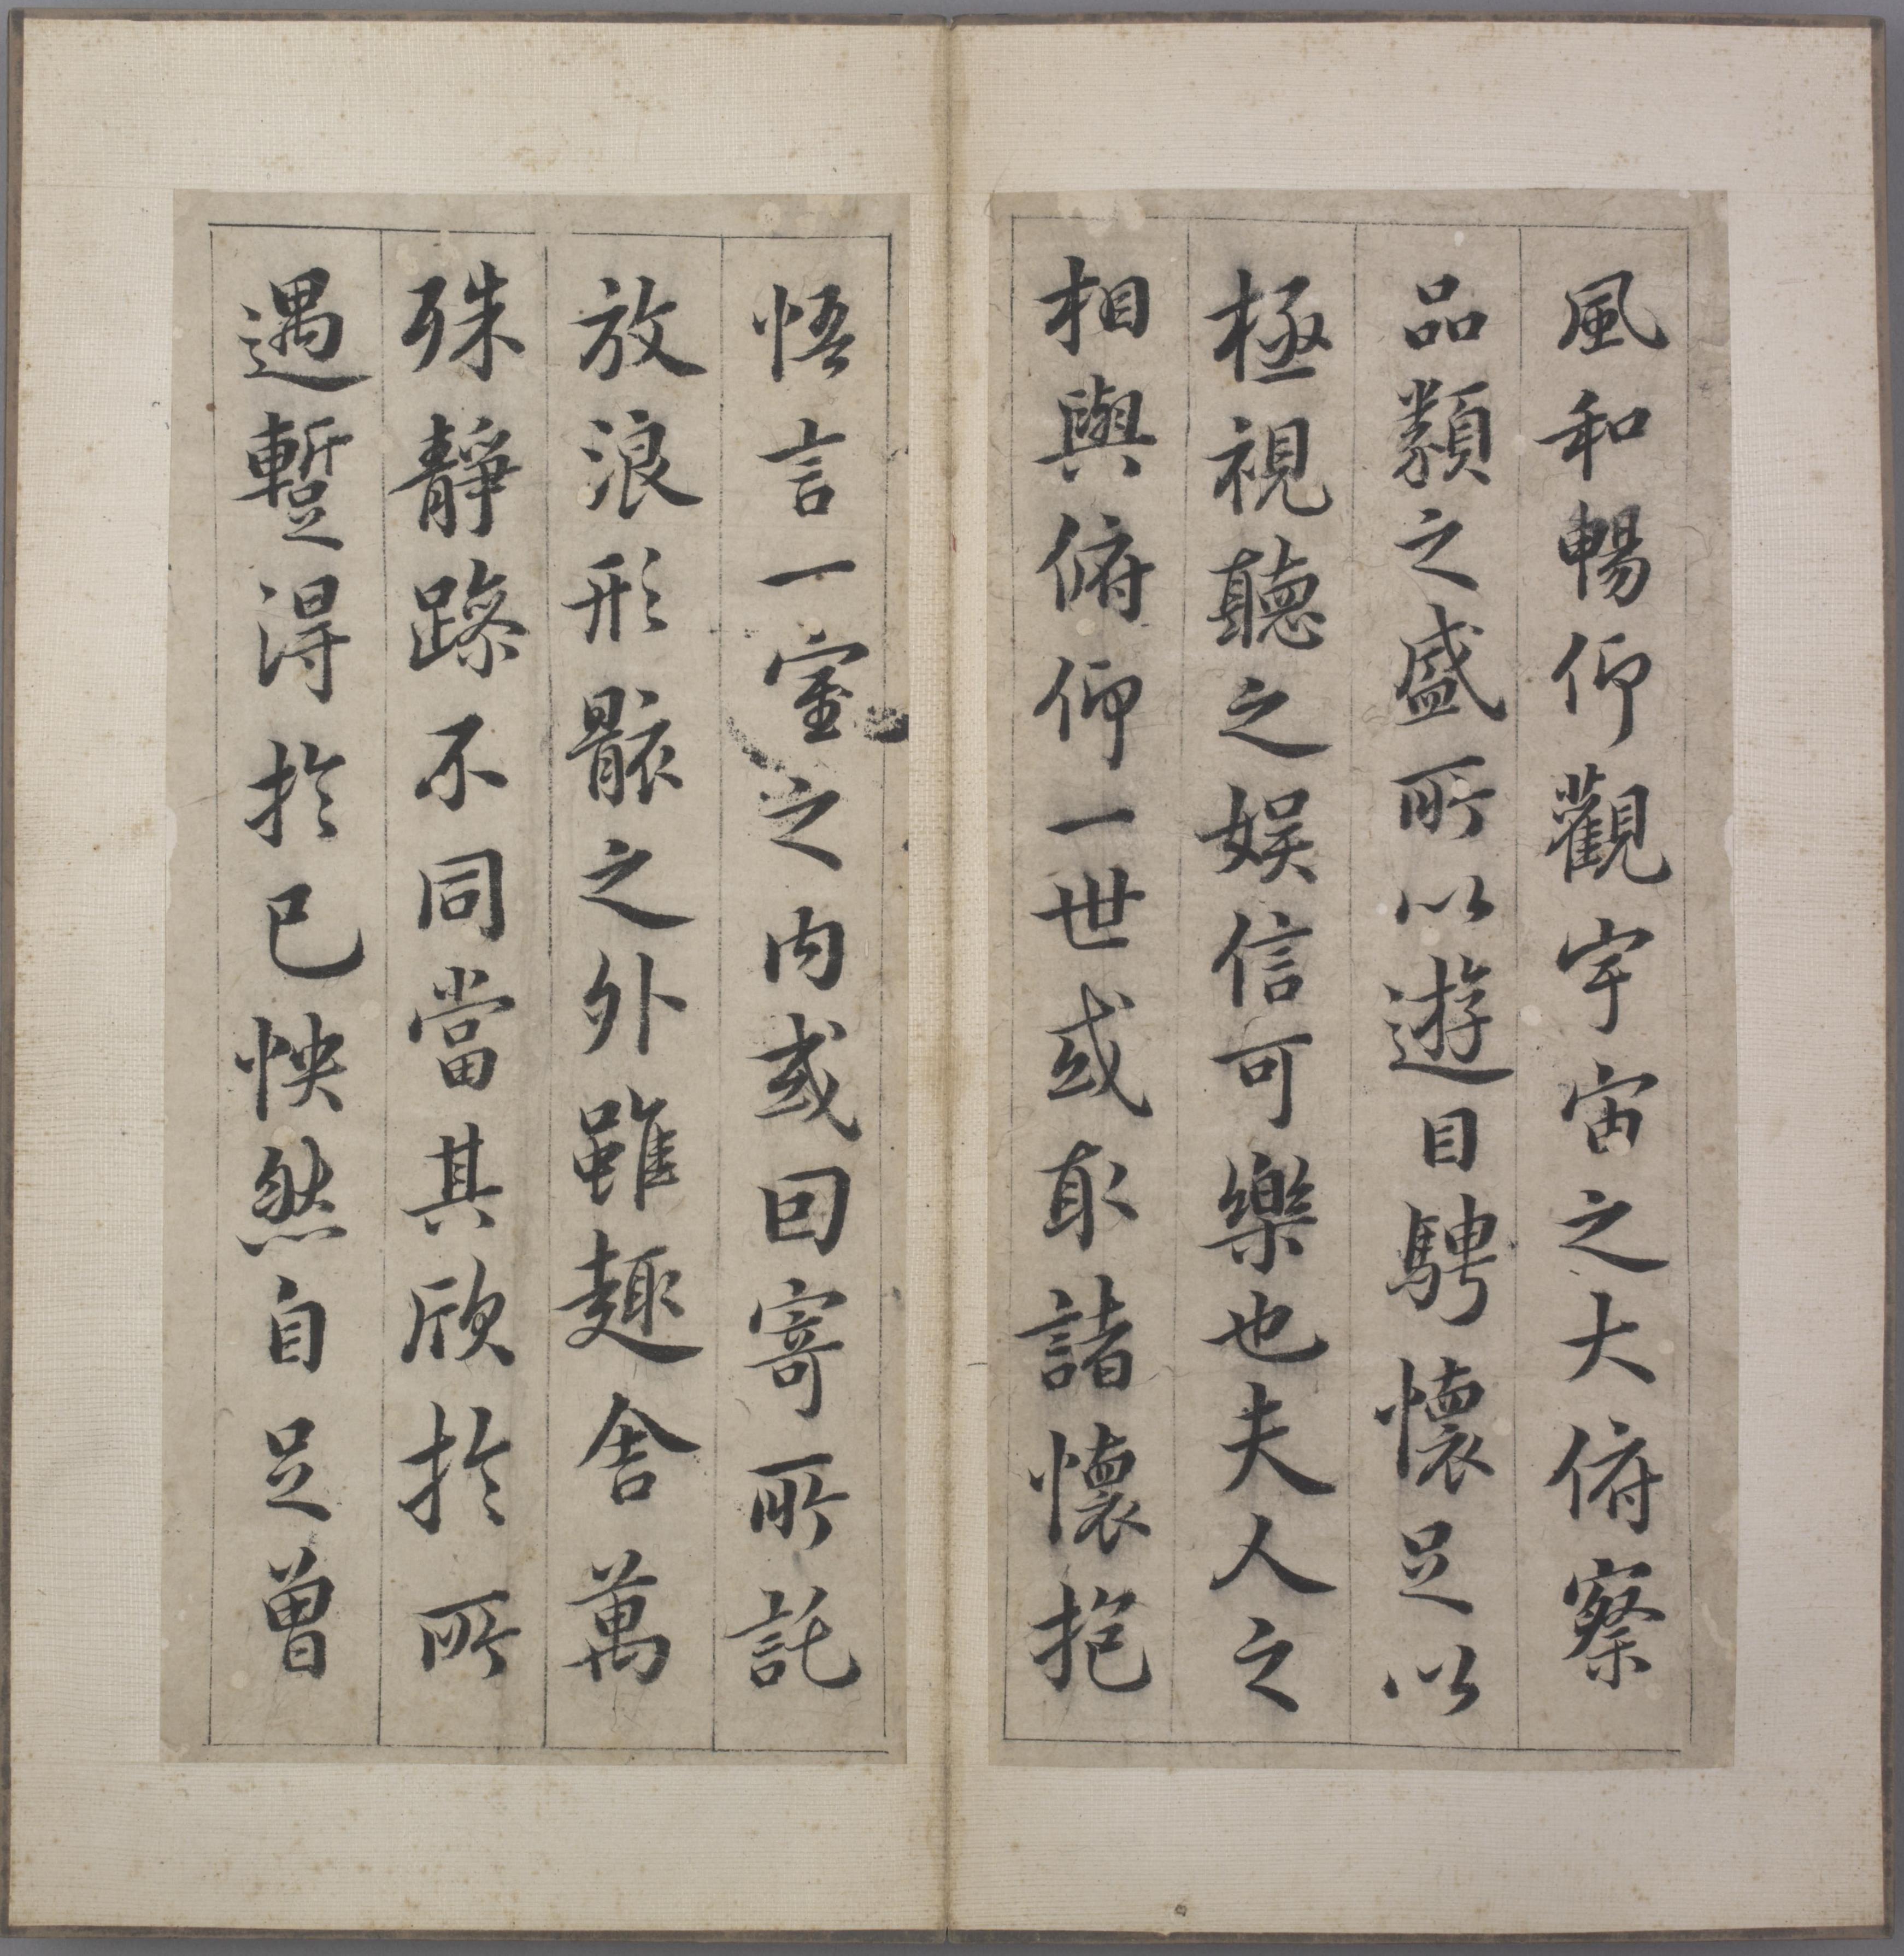 風和暢仰觀宇宙之大俯察
品類之盛所以遊目騁懷足以
極視聽之娛信可樂也夫人之
相與俯仰一世或取諸懷抱
悟言一室之內或回寄所託
放浪形骸之外雖趣舍萬
殊靜躁不同當其欣於所
遇蹔得於己怏然自足曾